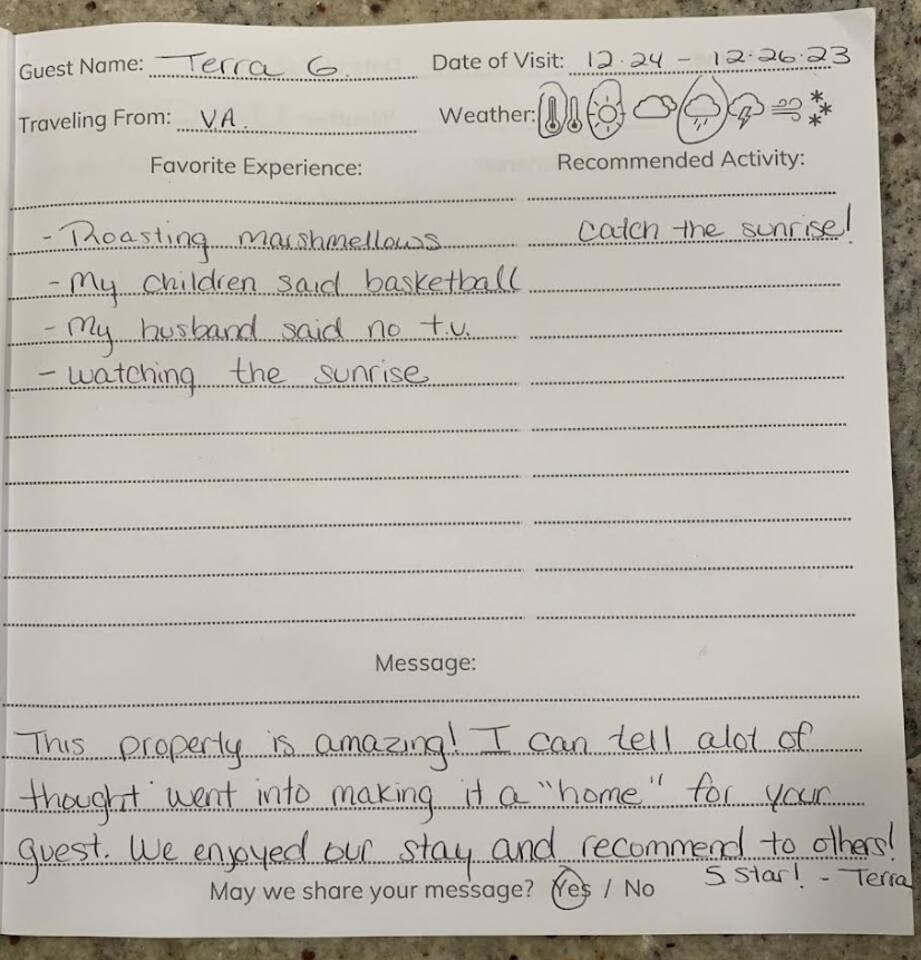 Guest Name: Terra G. Date of Visit: 12.24 - 12.26.23
Traveling From: VA. Weather:
Favorite Experience: Recommended Activity:
- Roasting marshmellows Catch the sunrise!
- My children said basketball
- My husband said no t.v.
- watching the sunrise
Message:
This property is amazing! I can tell alot of
thought went into making it a "home" for your
guest. We enjoyed our stay and recommend to others!
5 Star! - Terra
May we share your message? Yes / No